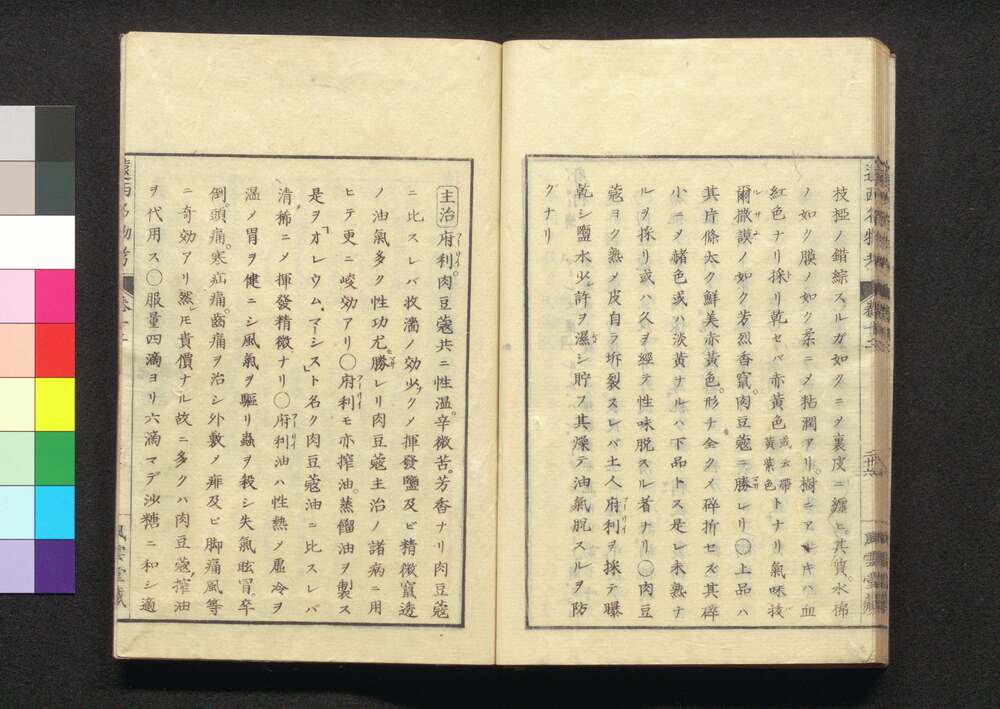 枝椏ノ錯綜スルガ如クニメ裏皮ニ纏ヒ其質水綿
ノ如ク膜ノ如ク柔ニメ粘潤アリ樹ニアルキハ血
紅色ナリ採リ乾セバ赤黄色或云帶黄紫色トナリ氣味抜
爾撒謨ノ如ク芳烈香竄肉豆蔻ニ勝レリ○上品ハ
其片條大ク鮮美赤黄色形チ全クメ碎折セズ其碎
小ニメ赭色或ハ淡黄ナルハ下品トス是レ未熟ナ
ルヲ採リ或ハ久ヲ經テ性味脱スル者ナリ○肉豆
蔻ヨク熟メ皮自ラ坼裂スレバ土人府利ヲ採テ曝
乾シ鹽水少許ヲ濕シ貯フ其燥テ油氣脱スルヲ防
グナリ
主治府利肉豆蔻共ニ性温辛微苦芳香ナリ肉豆蔻
ニ比スレバ收濇ノ効少クメ揮發鹽及ビ精微竄透
ノ油氣多ク性功尤勝レリ肉豆蔻主治ノ諸病ニ用
ヒテ更ニ峻効アリ○府利モ亦搾油蒸餾油ヲ製ス
是ヲ「オレウムマーシス」ト名ク肉豆蔻油ニ比スレバ
清稀ニメ揮發精微ナリ○府利油ハ性熱メ虚冷ヲ
温メ胃ヲ健ニシ風氣ヲ驅リ蟲ヲ殺シ失氣眩冒卒
倒頭痛寒疝痛齒痛ヲ治シ外敷メ痱及ビ脚痛風等
ニ奇効アリ然レモ貴價ナル故ニ多クハ肉豆蔻搾油
ヲ代用ス○服量四滴ヨリ六滴マデ沙糖ニ和シ適